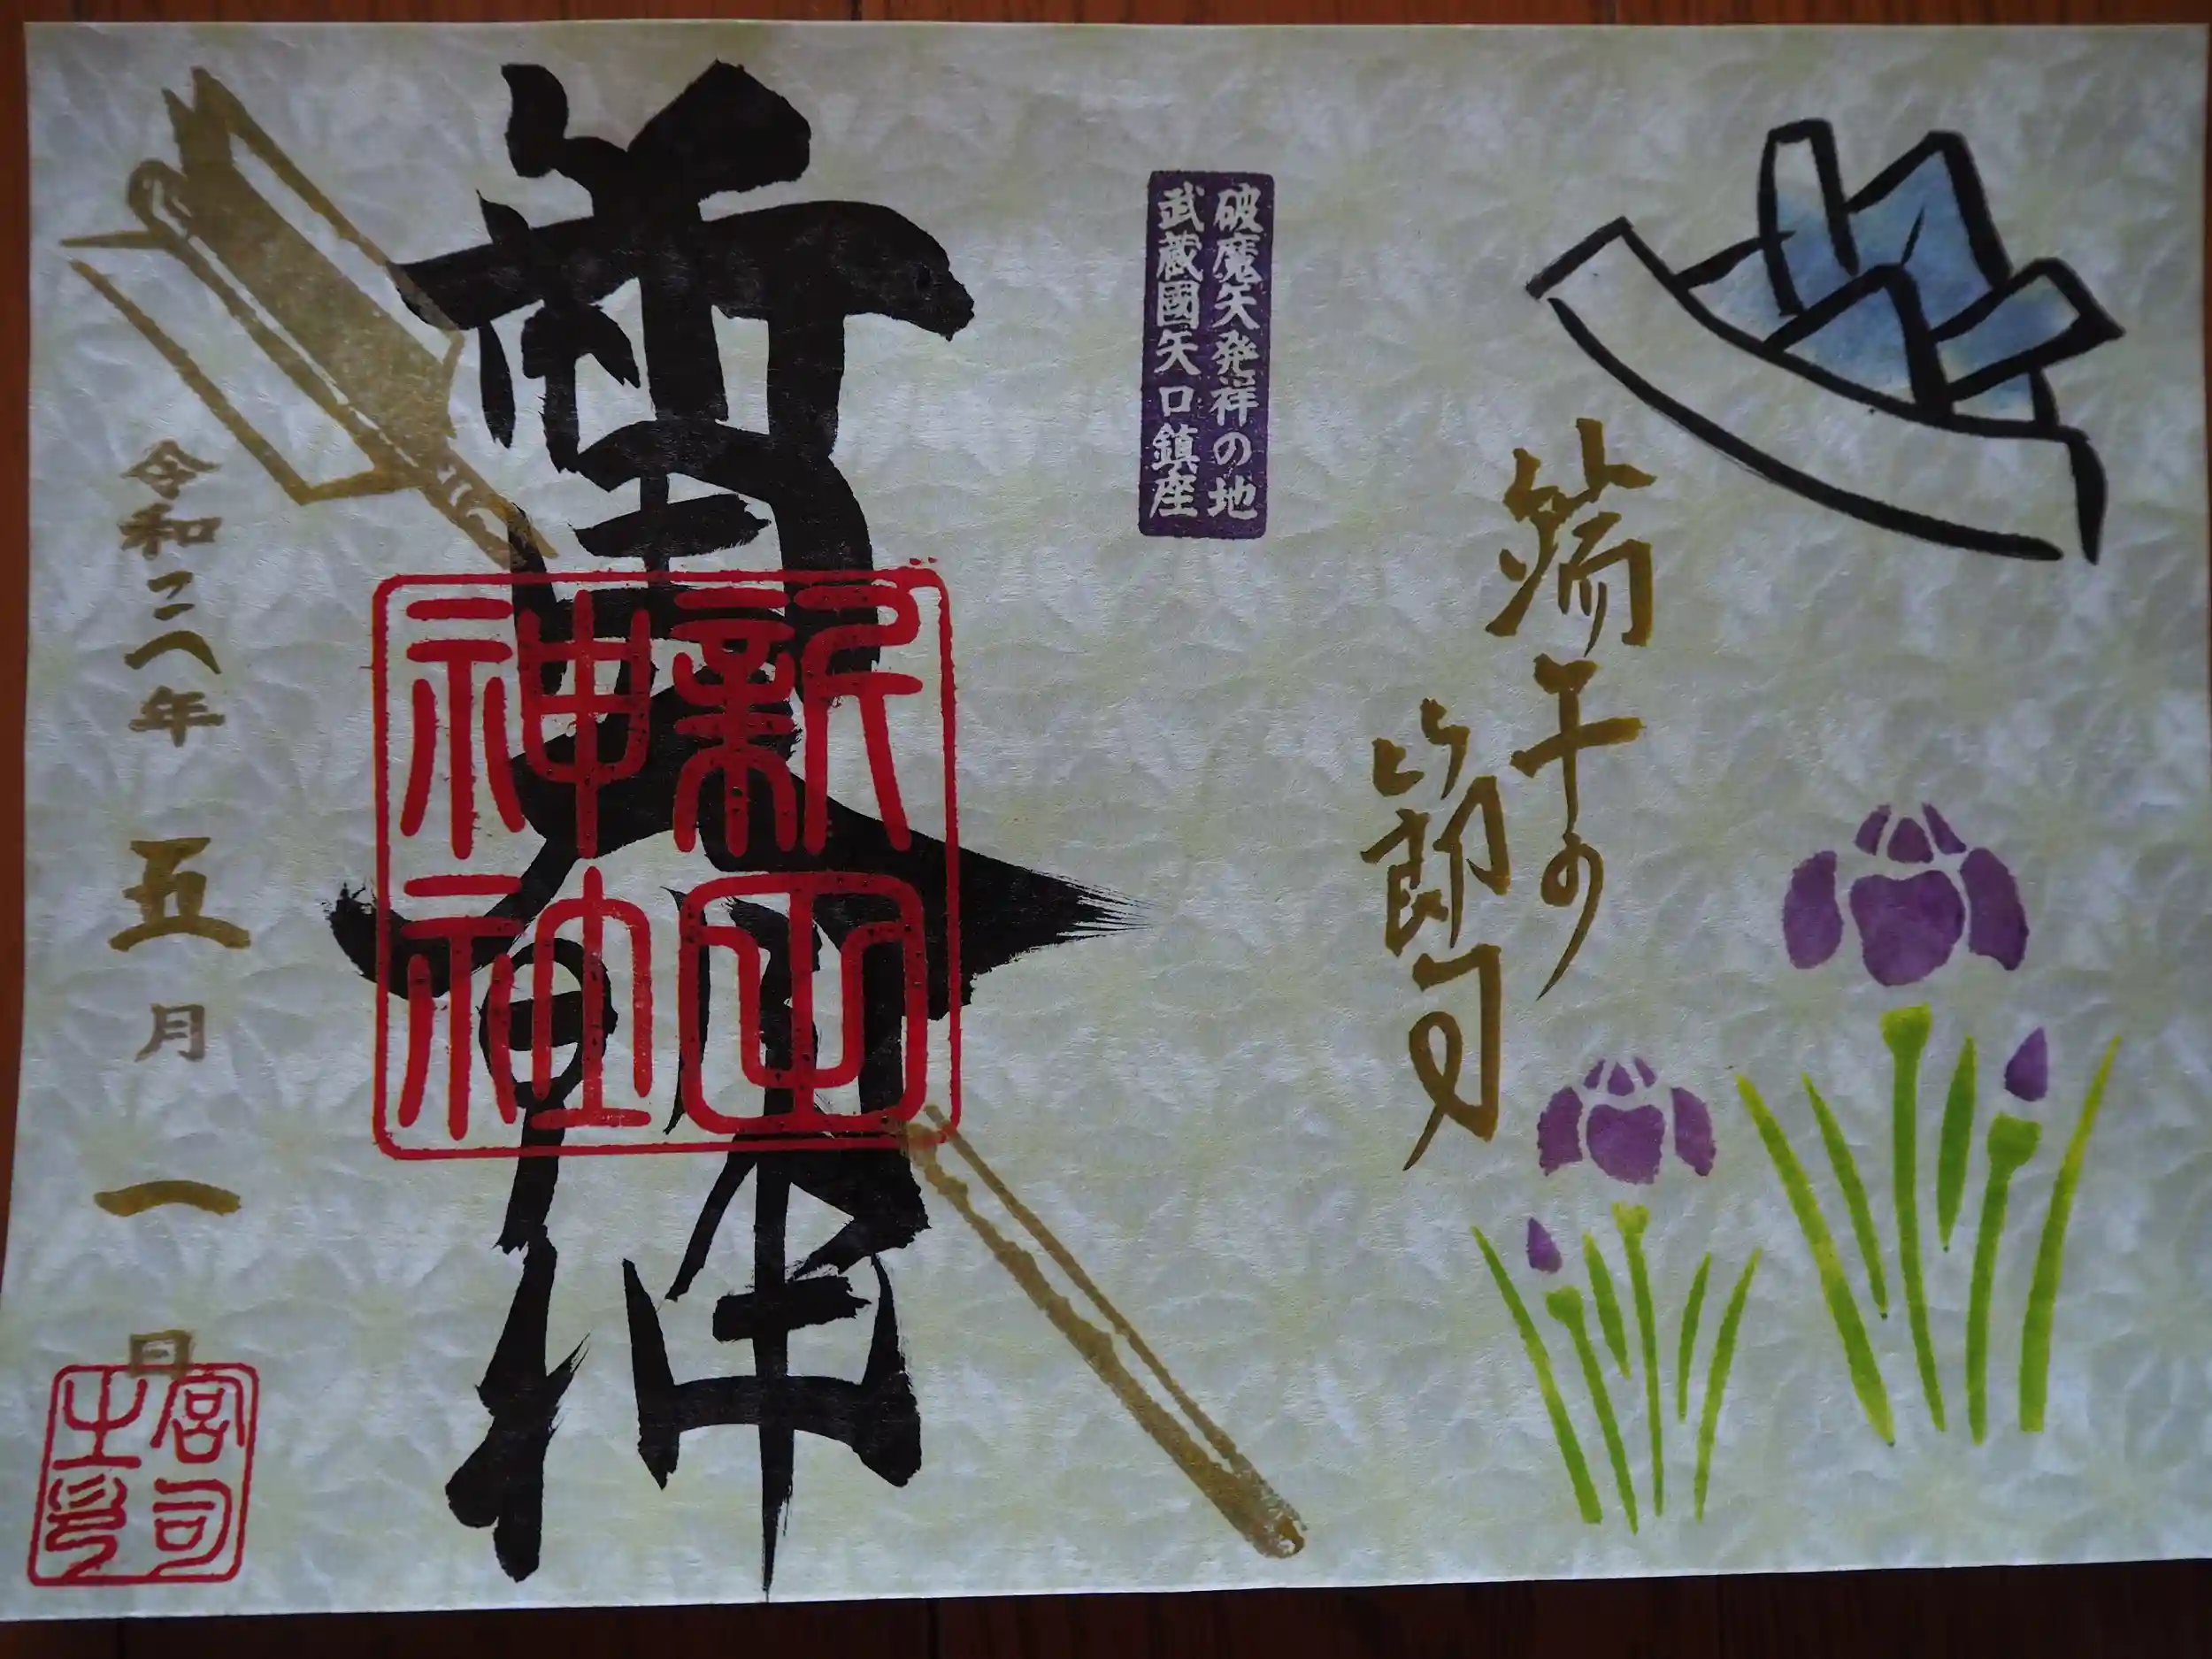 端午の
節句
破魔矢発祥の地
武蔵國矢口鎮座
新田
神社
令和六年五月一日
宮司
之印